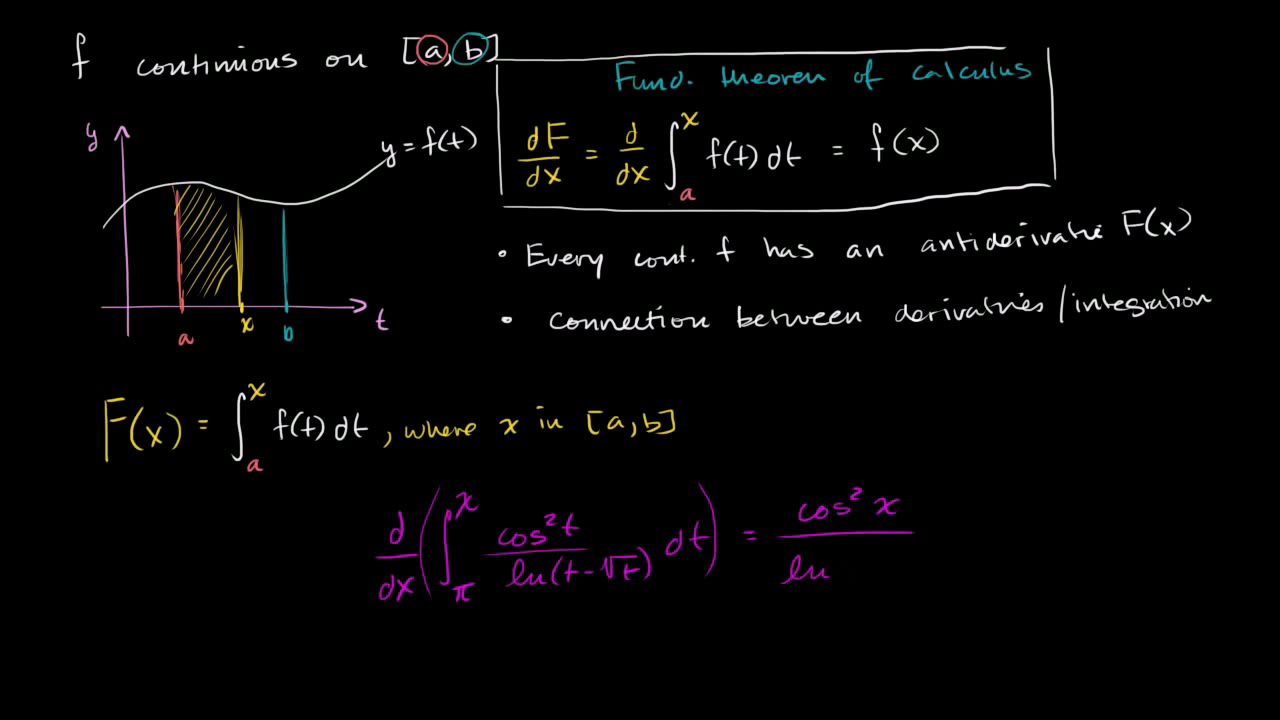 f continuous on [a, b]
Fund. theorem of calculus
dF/dx = d/dx ∫_a^x f(t) dt = f(x)
y
y = f(t)
a
x
b
t
• Every cont. f has an antiderivative F(x)
• connection between derivatives/integration
F(x) = ∫_a^x f(t) dt, where x in [a, b]
d/dx (∫_π^x cos²t / ln(t-√t) dt) = cos²x / ln